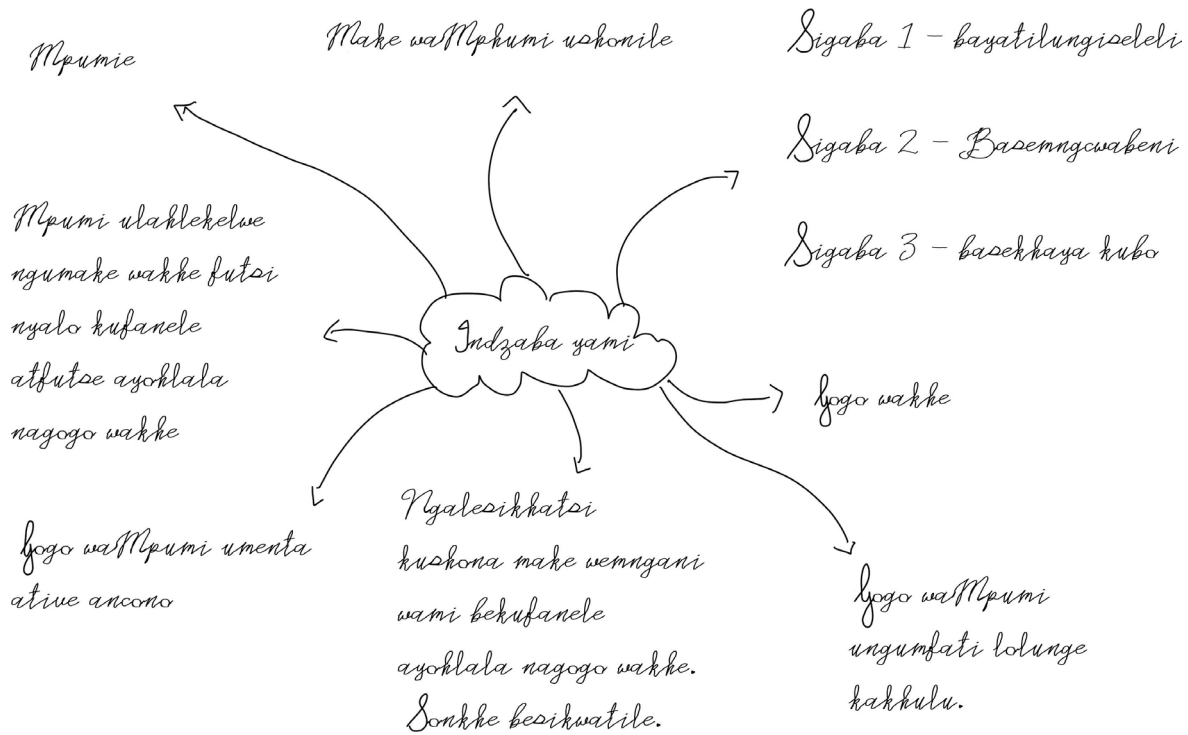 Mpumie
Make waMphumi ushonile
Sigaba 1 – bayatilungiseleli
Sigaba 2 – Basemngcwabeni
Sigaba 3 – basekhaya kubo
Mpumi ulahlekelwe
ngumake wakhe futsi
nyalo kufanele
atfutse ayohlala
nagogo wakhe
Indzaba yami
Gogo wakhe
Gogo waMpumi umenta
ative ancono
Ngalesikhatsi
kushona make wemngani
wami bekufanele
ayohlala nagogo wakhe.
Sonkhe besikwatile.
Gogo waMpumi
ungumfati lolunge
kakhulu.